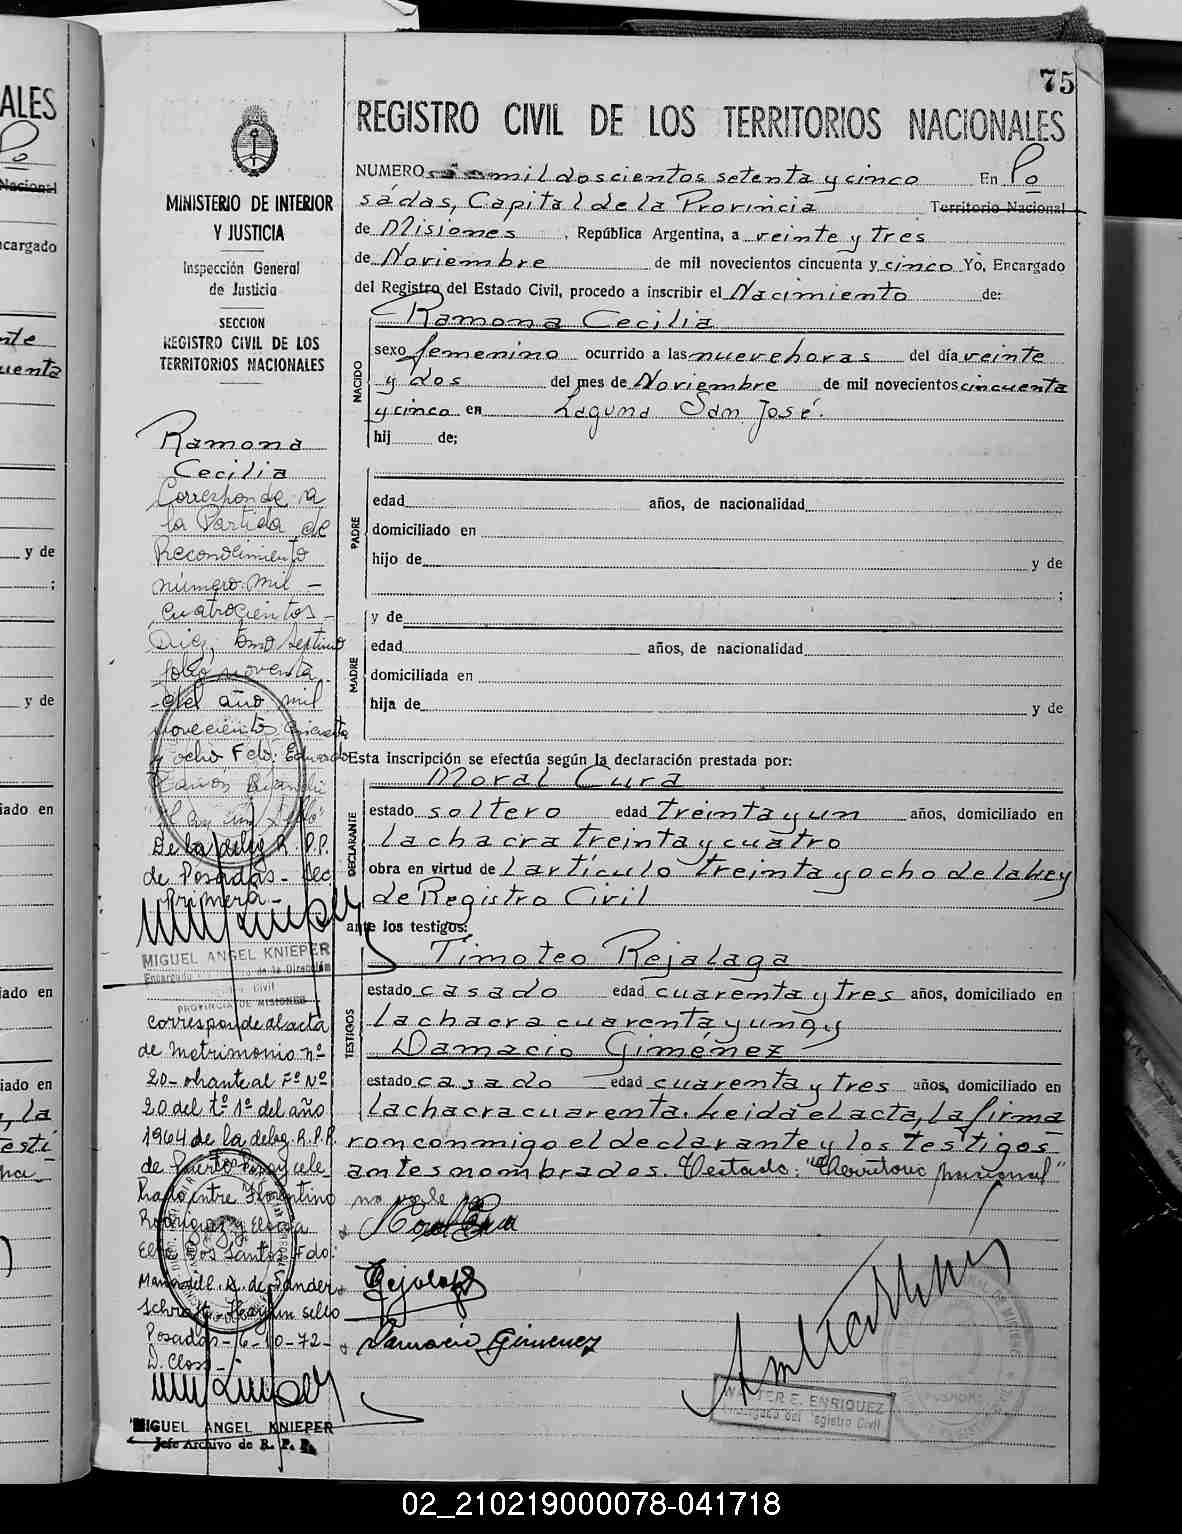 75
REGISTRO CIVIL DE LOS TERRITORIOS NACIONALES
NUMERO mil doscientos setenta y cinco En Po
sadas, Capital de la Provincia Territorio Nacional
de Misiones, República Argentina, a veinte y tres
de Noviembre de mil novecientos cincuenta y cinco Yo, Encargado
del Registro del Estado Civil, procedo a inscribir el Nacimiento de:
NACIDO
Ramona Cecilia
sexo femenino ocurrido a las nueve horas del día veinte
y dos del mes de Noviembre de mil novecientos cincuenta
y cinco en Laguna San José.
hij de;
PADRE
edad años, de nacionalidad
domiciliado en
hijo de y de
;
y de
MADRE
edad años, de nacionalidad
domiciliada en
hija de y de
Esta inscripción se efectúa según la declaración prestada por:
DECLARANTE
Moral Cura
estado soltero edad treinta y un años, domiciliado en
la chacra treinta y cuatro
obra en virtud de l artículo treinta y ocho de la Ley
de Registro Civil
ante los testigos:
TESTIGOS
Timoteo Rejalaga
estado casado edad cuarenta y tres años, domiciliado en
la chacra cuarenta y una y
Damacio Giménez
estado casado edad cuarenta y tres años, domiciliado en
la chacra cuarenta. Leida el acta, la firma
ron conmigo el declarante y los testigos
antes nombrados. Testado: "Territorio Nacional"
no vale
Rejalaga
Damacio Gimenez
WALTER E. ENRIQUEZ
Encargado del Registro Civil
MINISTERIO DE INTERIOR
Y JUSTICIA
Inspección General
de Justicia
SECCION
REGISTRO CIVIL DE LOS
TERRITORIOS NACIONALES
Ramona
Cecilia
Corresponde a
la Partida de
Reconocimiento
número mil
cuatrocientos
Diez, tomo septimo
folio noventa
del año mil
novecientos cincuenta
y ocho Fdo: Eduardo
Ramón
De la deleg R. P. P.
de Posadas - Sec
Primera -
MIGUEL ANGEL KNIEPER
PROVINCIA DE MISIONES
corresponde al acta
de matrimonio nº
20 - obrante al Fº Nº
20 del tº 1º del año
1964 de la deleg. R.P.P.
de Puerto y cele
brado entre Florentino
Rodriguez y
Dos Santos Fdo:
hay un sello
Posadas - 6-10-72 -
MIGUEL ANGEL KNIEPER
Jefe Archivo de R. P. P.
ALES
Po
Nacional
ncargado
nte
uenta
y de
;
y de
iado en
iado en
iado en
, la
testi
na
02_210219000078-041718